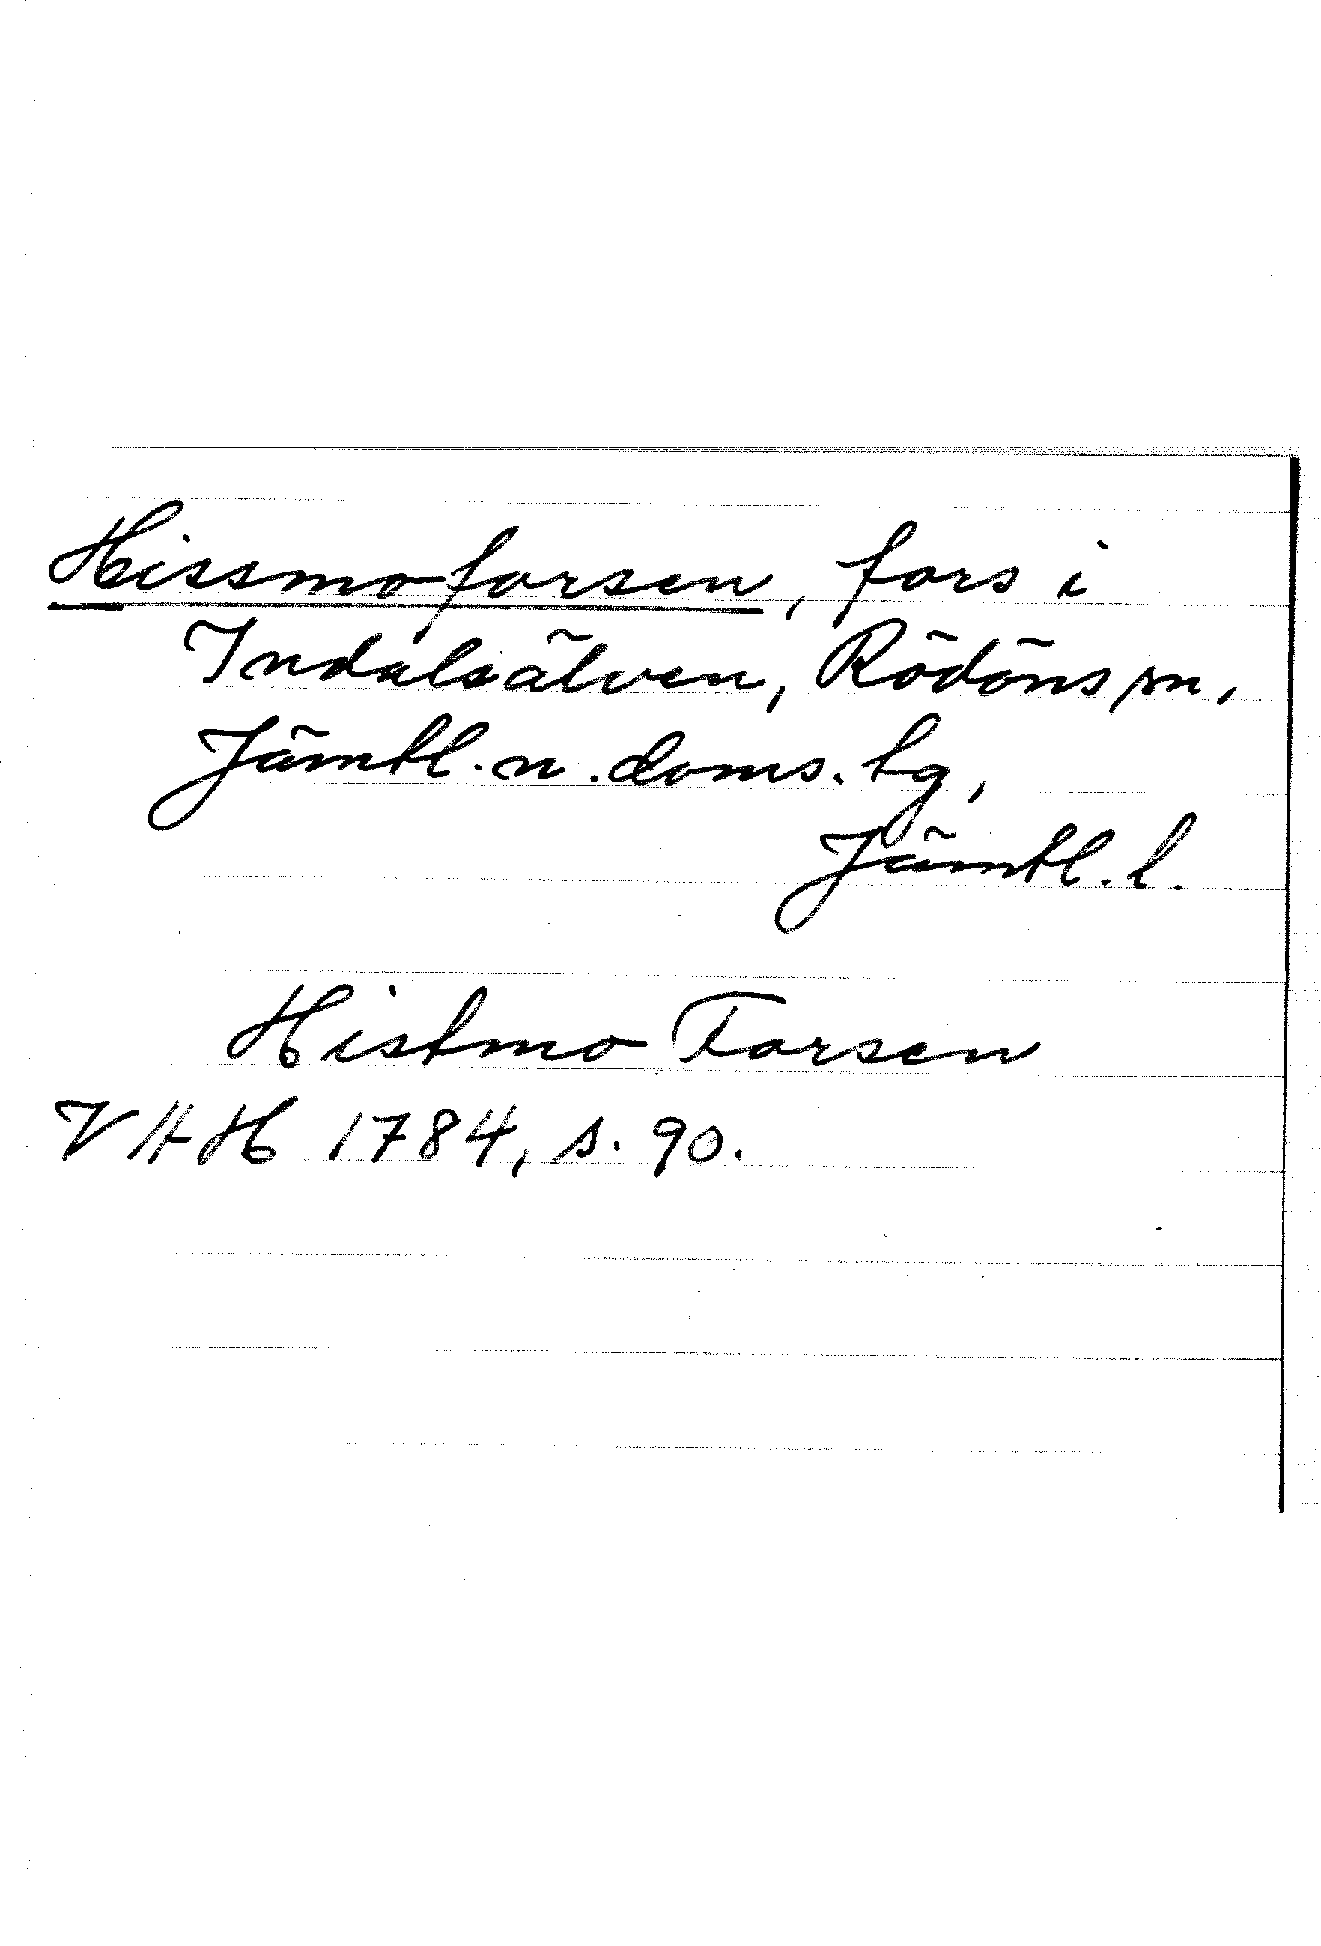 Hissmoforsen, fors i
Indalsälven, Rödöns sn,
Jämtl. n. doms. tg,
Jämtl. l.
Histmo Forsen
VAH 1784, s. 90.